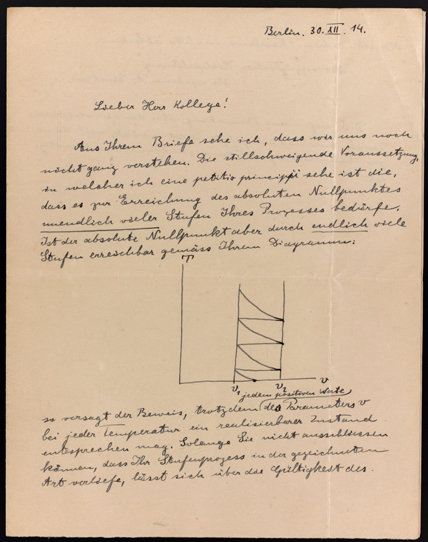 Berlin. 30. XII. 14.
Lieber Herr Kollege!
Aus Ihrem Briefe sehe ich, dass wir uns noch
nicht ganz verstehen. Die stillschweigende Voraussetzung,
in welcher ich eine petitio principii sehe ist die,
dass es zur Erreichung des absoluten Nullpunktes
unendlich vieler Stufen Ihres Prozesses bedürfe.
Ist der absolute Nullpunkt aber durch endlich viele
Stufen erreichbar gemäss Ihrem Diagramm:
T
v1 v2 v
jedem positiven Werte
so versagt der Beweis, trotzdem des Parameters v
bei jeder Temperatur ein realisierbarer Zustand
entsprechen mag. Solange Sie nicht ausschliessen
können, dass Ihr Stufenprozess in der gezeichneten
Art verliefe, lässt sich über die Gültigkeit des